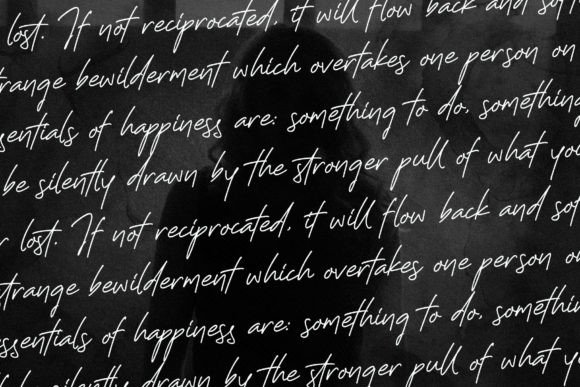 lost. If not reciprocated, it will flow back and soft
trange bewilderment which overtakes one person on
ssentials of happiness are: something to do, something
be silently drawn by the stronger pull of what you
r lost. If not reciprocated, it will flow back and soft
strange bewilderment which overtakes one person on
essentials of happiness are: something to do, something
be silently drawn by the stronger pull of what yo